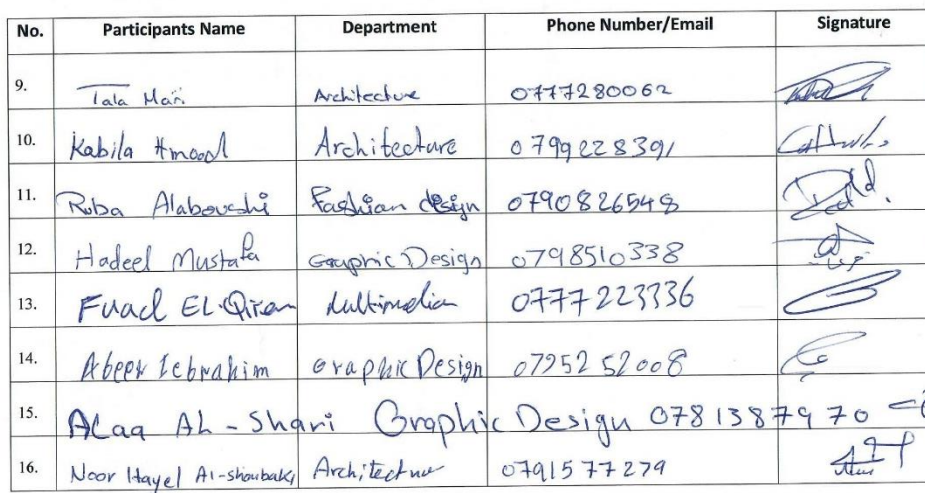 No. Participants Name Department Phone Number/Email Signature
9. Tala Mari Architecture 0777280062
10. Kabila Hmood Architecture 0799228391
11. Ruba Alaboushi Fashian design 0790826548
12. Hadeel Mustafa Grauphic Design 0798510338
13. Fuad EL-Qiren Multimedian 0777223336
14. Abeer Iebrahim Graphic Design 0795252008
15. ALaa AL-Shari Graphic Design 0781387970
16. Noor Hayel Al-shoubaki Architecture 0791577279